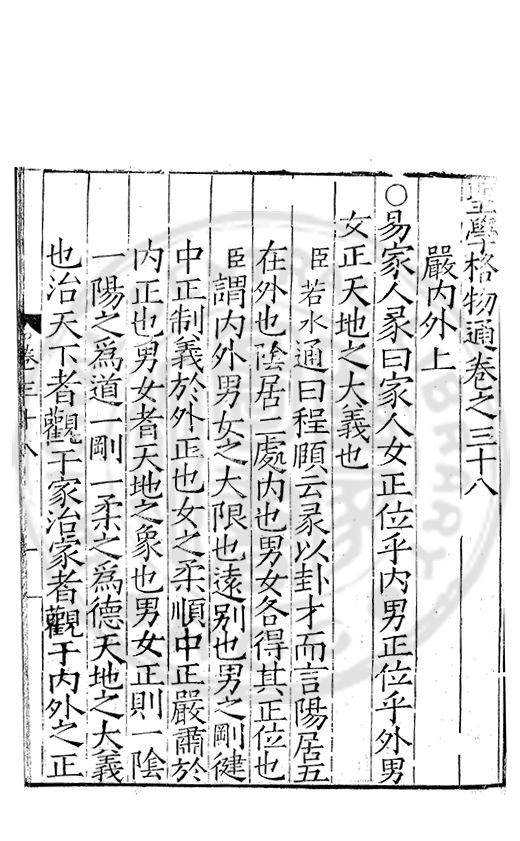 聖學格物通卷之三十八
嚴內外上
○易家人彖曰家人女正位乎內男正位乎外男
女正天地之大義也
臣若水通曰程頤云彖以卦才而言陽居五
在外也陰居二處內也男女各得其正位也
臣謂內外男女之大限也遠别也男之剛健
中正制義於外正也女之柔順中正嚴肅於
內正也男女者天地之象也男女正則一陰
一陽之為道一剛一柔之為德天地之大義
也治天下者觀于家治家者觀于內外之正
卷三十八
一